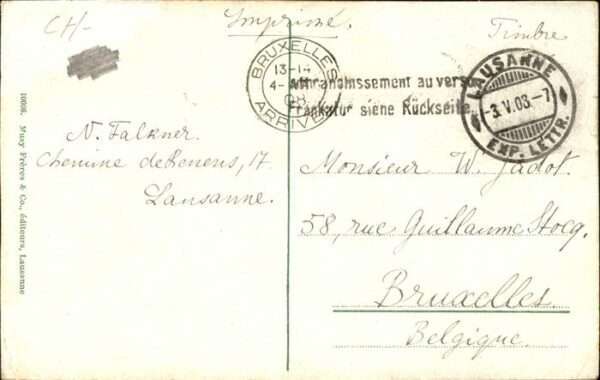 CH-
Imprimé.
Timbre
BRUXELLES
13-14
4-
08
ARRIVE
Affranchissement au verso.
Frankatur siehe Rückseite.
LAUSANNE
-3.V.08.-7
EXP. LETTR.
N. Falkner.
Chemine de Renens, 17.
Lausanne.
Monsieur W. Jadot.
58, rue Guillaume Stocq.
Bruxelles.
Belgique.
10098. Musy Frères & Co., éditeurs, Lausanne